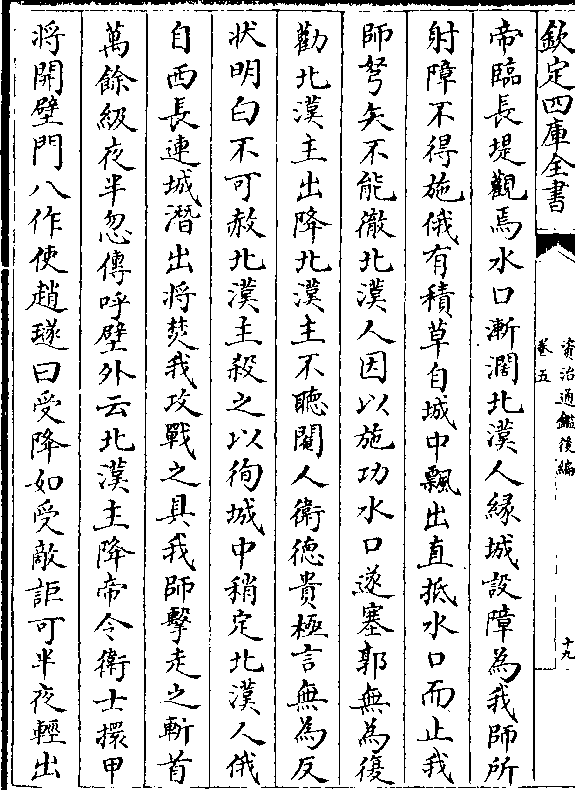 欽定四庫全書
資治通鑑後編
卷五
十九
帝臨長堤觀焉水口漸濶北漢人緣城設障為我師所
射障不得施俄有積草自城中飄出直抵水口而止我
師弩矢不能徹北漢人因以施功水口遂塞郭無為復
勸北漢主出降北漢主不聽閹人衛德貴極言無為反
狀明白不可赦北漢主殺之以徇城中稍定北漢人俄
自西長連城潛出將焚我攻戰之具我師擊走之斬首
萬餘級夜半忽傳呼壁外云北漢主降帝令衛士擐甲
將開壁門八作使趙璲曰受降如受敵詎可半夜輕出